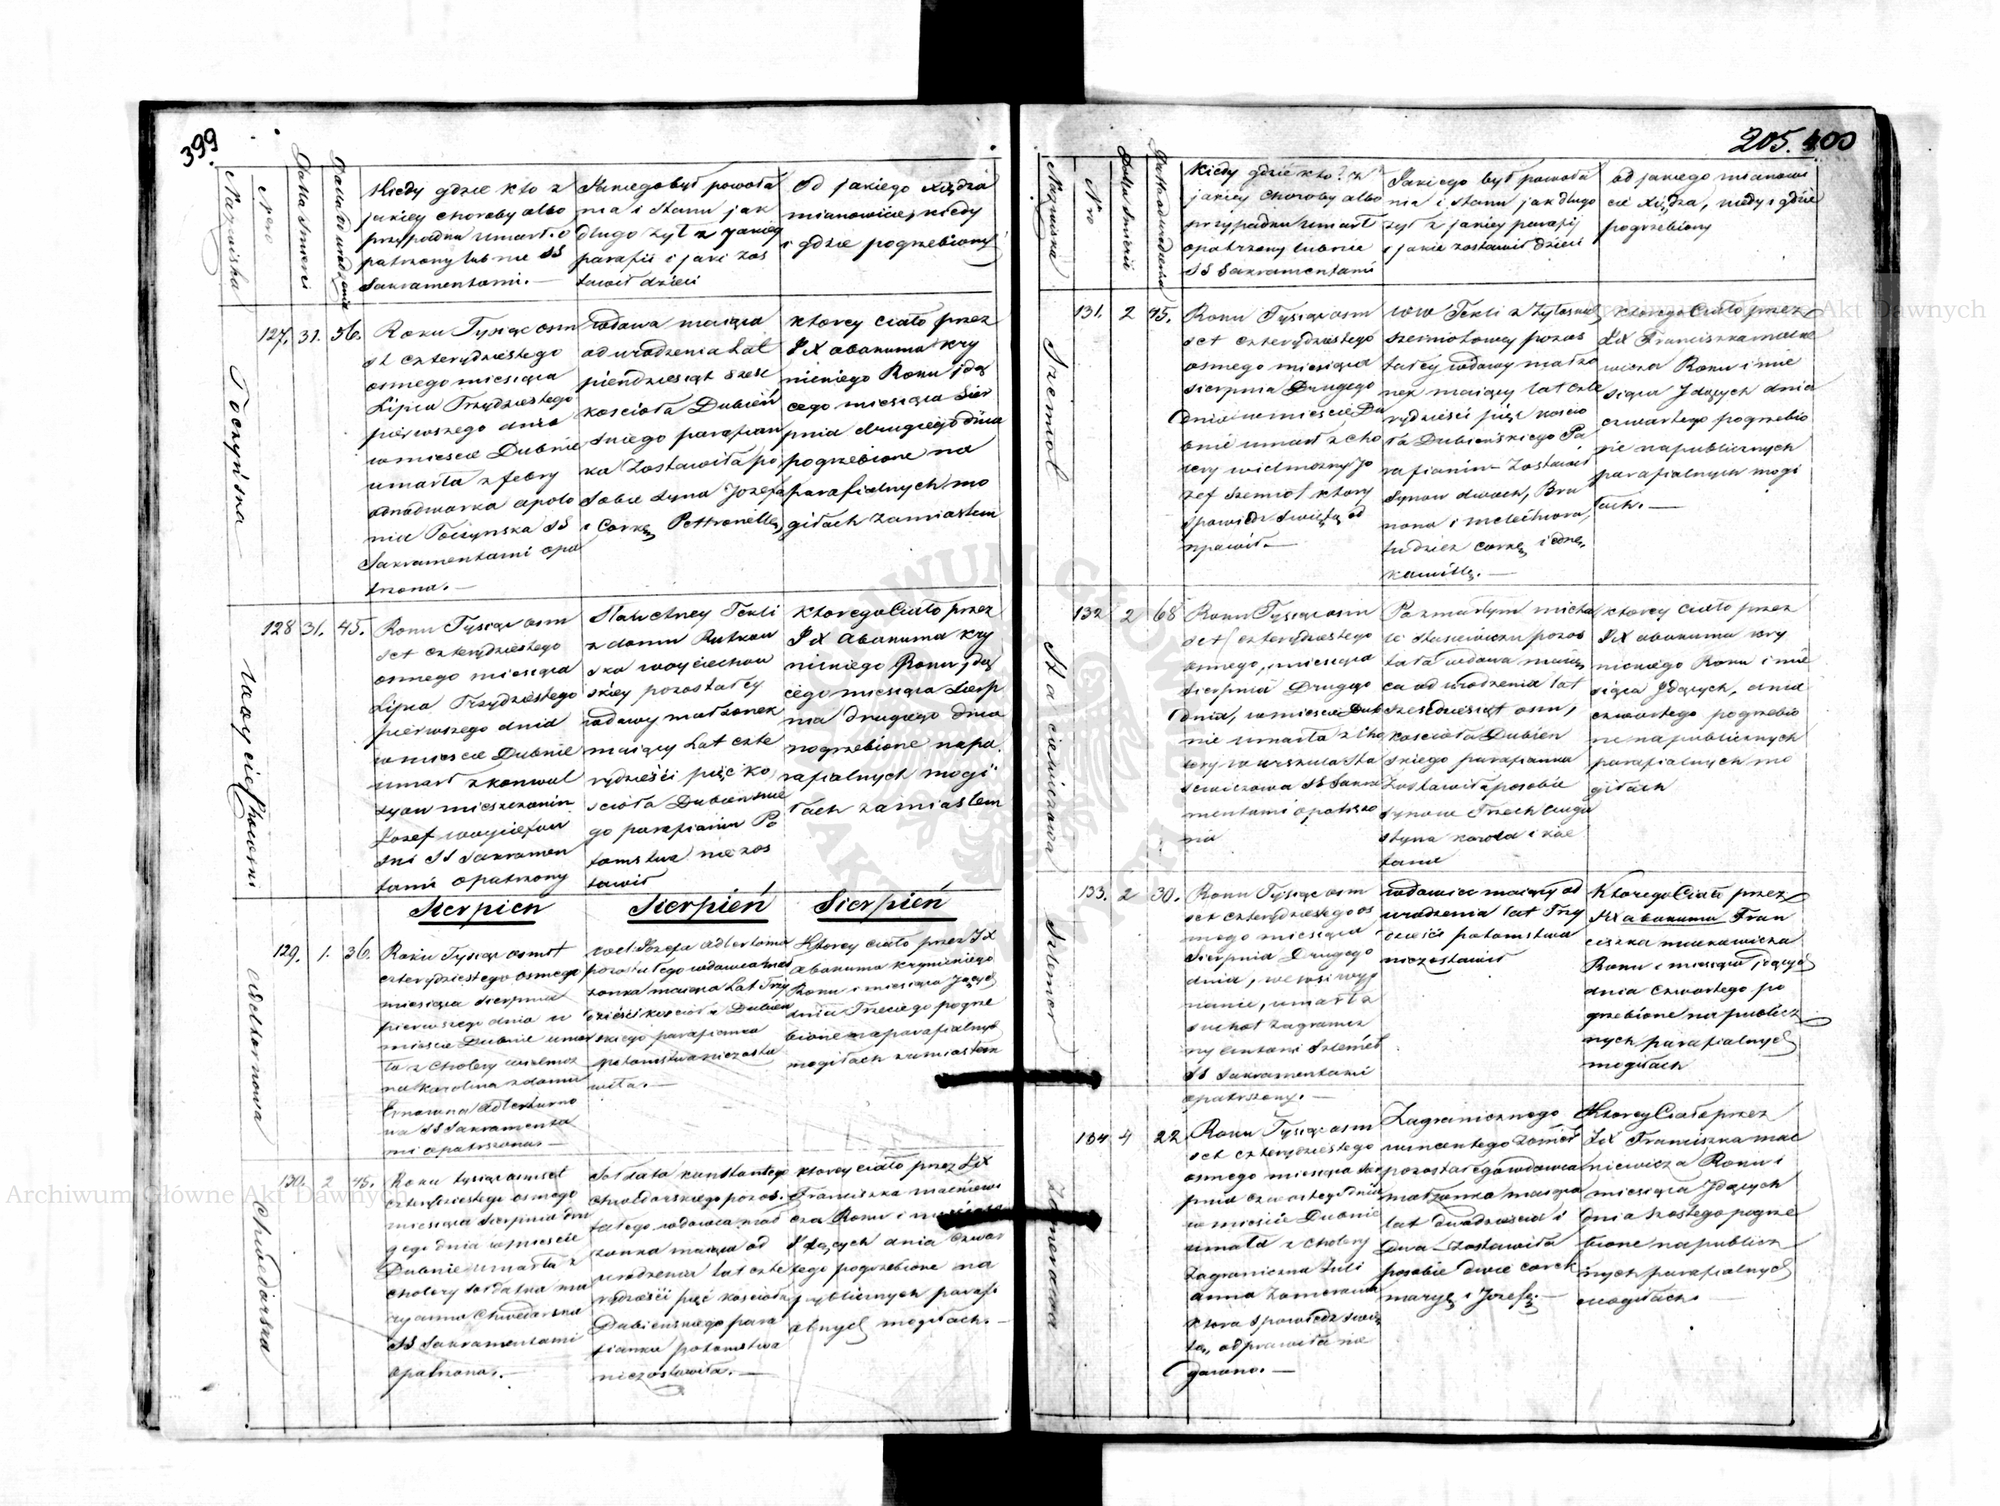 399
Nazwiska
Nro
Datta Smierci
Datta Od urodzenia
Kiedy gdzie kto z
jakiey choroby albo
przypadku umarł. o
patrzony lub nie SS
Sakramentami. —
Jakiego był powoła
nia i Stanu jak
długo żył z jakiey
parafii i jaki zos
tawił dzieci
Od jakiego Xiędza
mianowicie, kiedy
i gdzie pogrzebiony
127. 31. 56.
Toczyńska
Roku Tysiąc osm
st czterydziestego
osmego miesiąca
Lipca Trzydziestego
pierwszego dnia
w miescie Dubnie
umarła z febry
odnodworka apolo
nia Toczynska SS
Sakramentami opa
trzona. —
wdowa maiąca
od urodzenia Lat
piendziesiąt szesc
kosciola Dubień
skiego parafian
ka zostawiła po
sobie syna Jozefa
i Corkę Pettronellę
ktorey ciało przez
JX abakuma kry
nickiego Roku idą
cego miesiąca Sier
pnia drugiego dnia
pogrzebione na
parafialnych mo
giłach za miastem
128 31. 45.
Roku Tysiąc osm
set czterydziestego
osmego miesiąca
Lipca Trzydziestego
pierwszego dnia
w miescie Dubnie
umarł z konwul
syow mieszczanin
Jozef woyciechow
ski SS Sakramen
tami opatrzony
Slachetney Tekli
z domu Rutkow
ska woyciechow
skiey pozostałey
wdowy małżonek
maiący Lat czte
rydzieści pięć ko
scioła Dubienskie
go parafianin Po
tomstwa nie zos
tawił
Ktorego Ciało przez
JX Abakuma kry
nickiego Roku idą
cego miesiąca Sierp
nia drugiego dnia
pogrzebione na pa.
rafialnych mogi
łach za miastem
Sierpien Sierpień Sierpień
129. 1. 36.
Roku Tysiąc osmst
czterydziestego osmego
miesiąca Sierpnia
pierwszego dnia w
miescie Dubnie umar
ła z Cholery wielmoz
na Karolina z domu
SS Sakramenta
mi opatrzona —
pozostałego wdowca mał
zonka maiąca Lat Trzy
dzieści kościoła Dubien
skiego parafianka
potomstwa nie zosta
wiła. —
Ktorey ciało przez JX
abakuma krynickiego
Roku i miesiąca Idący
dnia Trzeciego pogrze
bione na parafialnyh
mogiłach za miastem
130. 2 45.
Chwedorska
Roku tysiąc osmset
czterdziestego osmego
miesiąca Sierpnia dru
giego dnia w miescie
Dubnie umarła z
cholery soldatka ma
ryanna Chwedorska
SS Sakramentami
opatrzona. —
Soldata konstantego
Chwedorskiego pozos.
tałego wdowca mał
zonka maiąca od
urodzenia lat czte
rydzieści pięć kościoła
Dubienskiego para
fianka potomstwa
niezostawiła. —
ktorey ciało przez JX
Franciszka mackiewi
cza Roku i miesiąca
Idących dnia czwar
tego pogrzebione na
publicznych parafi
alnych mogiłach. —
205. 400
Nazwiska
Nro
Datta Smierci
Datta od urodzenia
Kiedy gdzie kto? z
jakiey choroby albo
przypadku umarł
opatrzony lub nie
SS Sakramentami
Jakiego był powoła
nia i Stanu jak długo
żył z jakiey parafij
i jakie zostawił dzieci
od jakiego mianowi
cie Xiędza, kiedy i gdzie
pogrzebiony
131. 2 45.
Szemiot
Roku Tysiąc osm
set czterydziestego
osmego miesiąca
Sierpnia Drugego
dnia w miescie Du
bnie umarł z cho
lery wielmozny Jo
zef Szemiot ktory
spowiedz Swiętą od
prawił. —
szemiotowey pozos
tałey wdowy małzo
nek maiący lat czte
rydzieści pięć koscio
ła Dubienskiego Pa
rafianin Zostawił
Synow dwoch, Bru
nona i melechiora,
tudziez corkę jedne,
kamillę. —
ktorego Ciało przez
JX Franciszka macke
wicza Roku i mie
siąca Idących dnia
czwartego pogrzebio
ne na publicznych
parafialnych mogi
łach. —
132 2 68
Staciewiczowa
Roku Tysiąc osm
set czterydziestego
osmego, miesiąca
Sierpnia Drugego
dnia, w miescie Dub
nie umarła z cho
lery Wurszula Sta
sewiczowa SS Sakra
mentami opatrzo
na
Po zmarłym micha
le Stasiewiczu pozos
tała wdowa maią
ca od urodzenia lat
szesdziesiąt osm,
kościoła Dubien
skiego parafianka
Zostawiła po sobie
synow Trzech Augu
styna karola i kae
tana
ktorey ciało przez
JX abakuma kry
nickiego Roku i mie
siąca Idących, dnia
czwartego pogrzebio
ne na publicznych
parafialnych mo
giłach
133. 2 30.
Szlemer
Roku Tysiąc osm
set czterydziestego os
mego miesiąca
Sierpnia Drugego
dnia, we wsi wyg
nanie, umarł z
suchot zagranicz
ny Antoni Szlemer
SS Sakramentami
opatrzony. —
wdowiec maiący od
urodzenia lat Trzy
dzieści potomstwa
niezostawił
Ktorego Ciało przez
JX abakuma Fran
ciszka mackewicza
Roku i miesiąca idących
dnia Czwartego po
grzebione na publicz
nych parafialnych
mogiłach
134 4 22
Zamerowna
Roku Tysiąc osm
set czterydziestego
osmego miesiąca Sier
pnia czwartego dnia
w miescie Dubnie
umała z cholery
Zagraniczna Juli
anna Zamerowna
ktora spowiedz swię
tą, odprawiła nie
dawno. —
Zagranicznego
wincentego
pozostałego wdowca
małzonka maiąca
lat dwadziescia i
Dwa — Zostawiła
posobie dwie corek
maryę i Jozefę. —
Ktorey Ciało przez
JX Franciszka mac
kiewicza Roku i
miesiąca Idących
dnia szostego pogrze
bione na publicz
nych parafialnych
mogiłach.
Archiwum Główne Akt Dawnych
Archiwum Główne Akt Dawnych